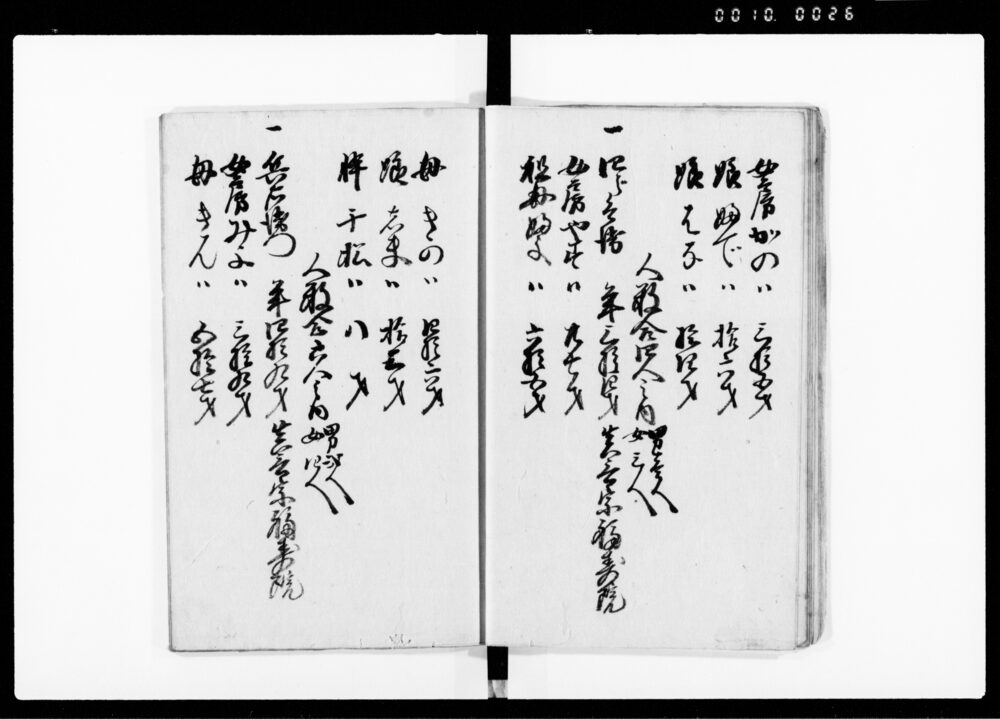 0010. 0026
女房かの〃 三拾五才
娘ゆで〃 拾六才
娘はる〃 拾四才
人数合四人之内 男壱人 女三人
一 四郎兵衛 年三拾四才 真言宗福寿院
女房やす〃 廿七才
祖母
人数合六人之内 男弐人 女四人
母きの〃 四拾六才
娘志ま〃 拾五才
忰千松〃 八才
一 兵右衛門 年四拾九才 真言宗福寿院
女房みよ〃 三拾九才
母きん〃 五拾七才